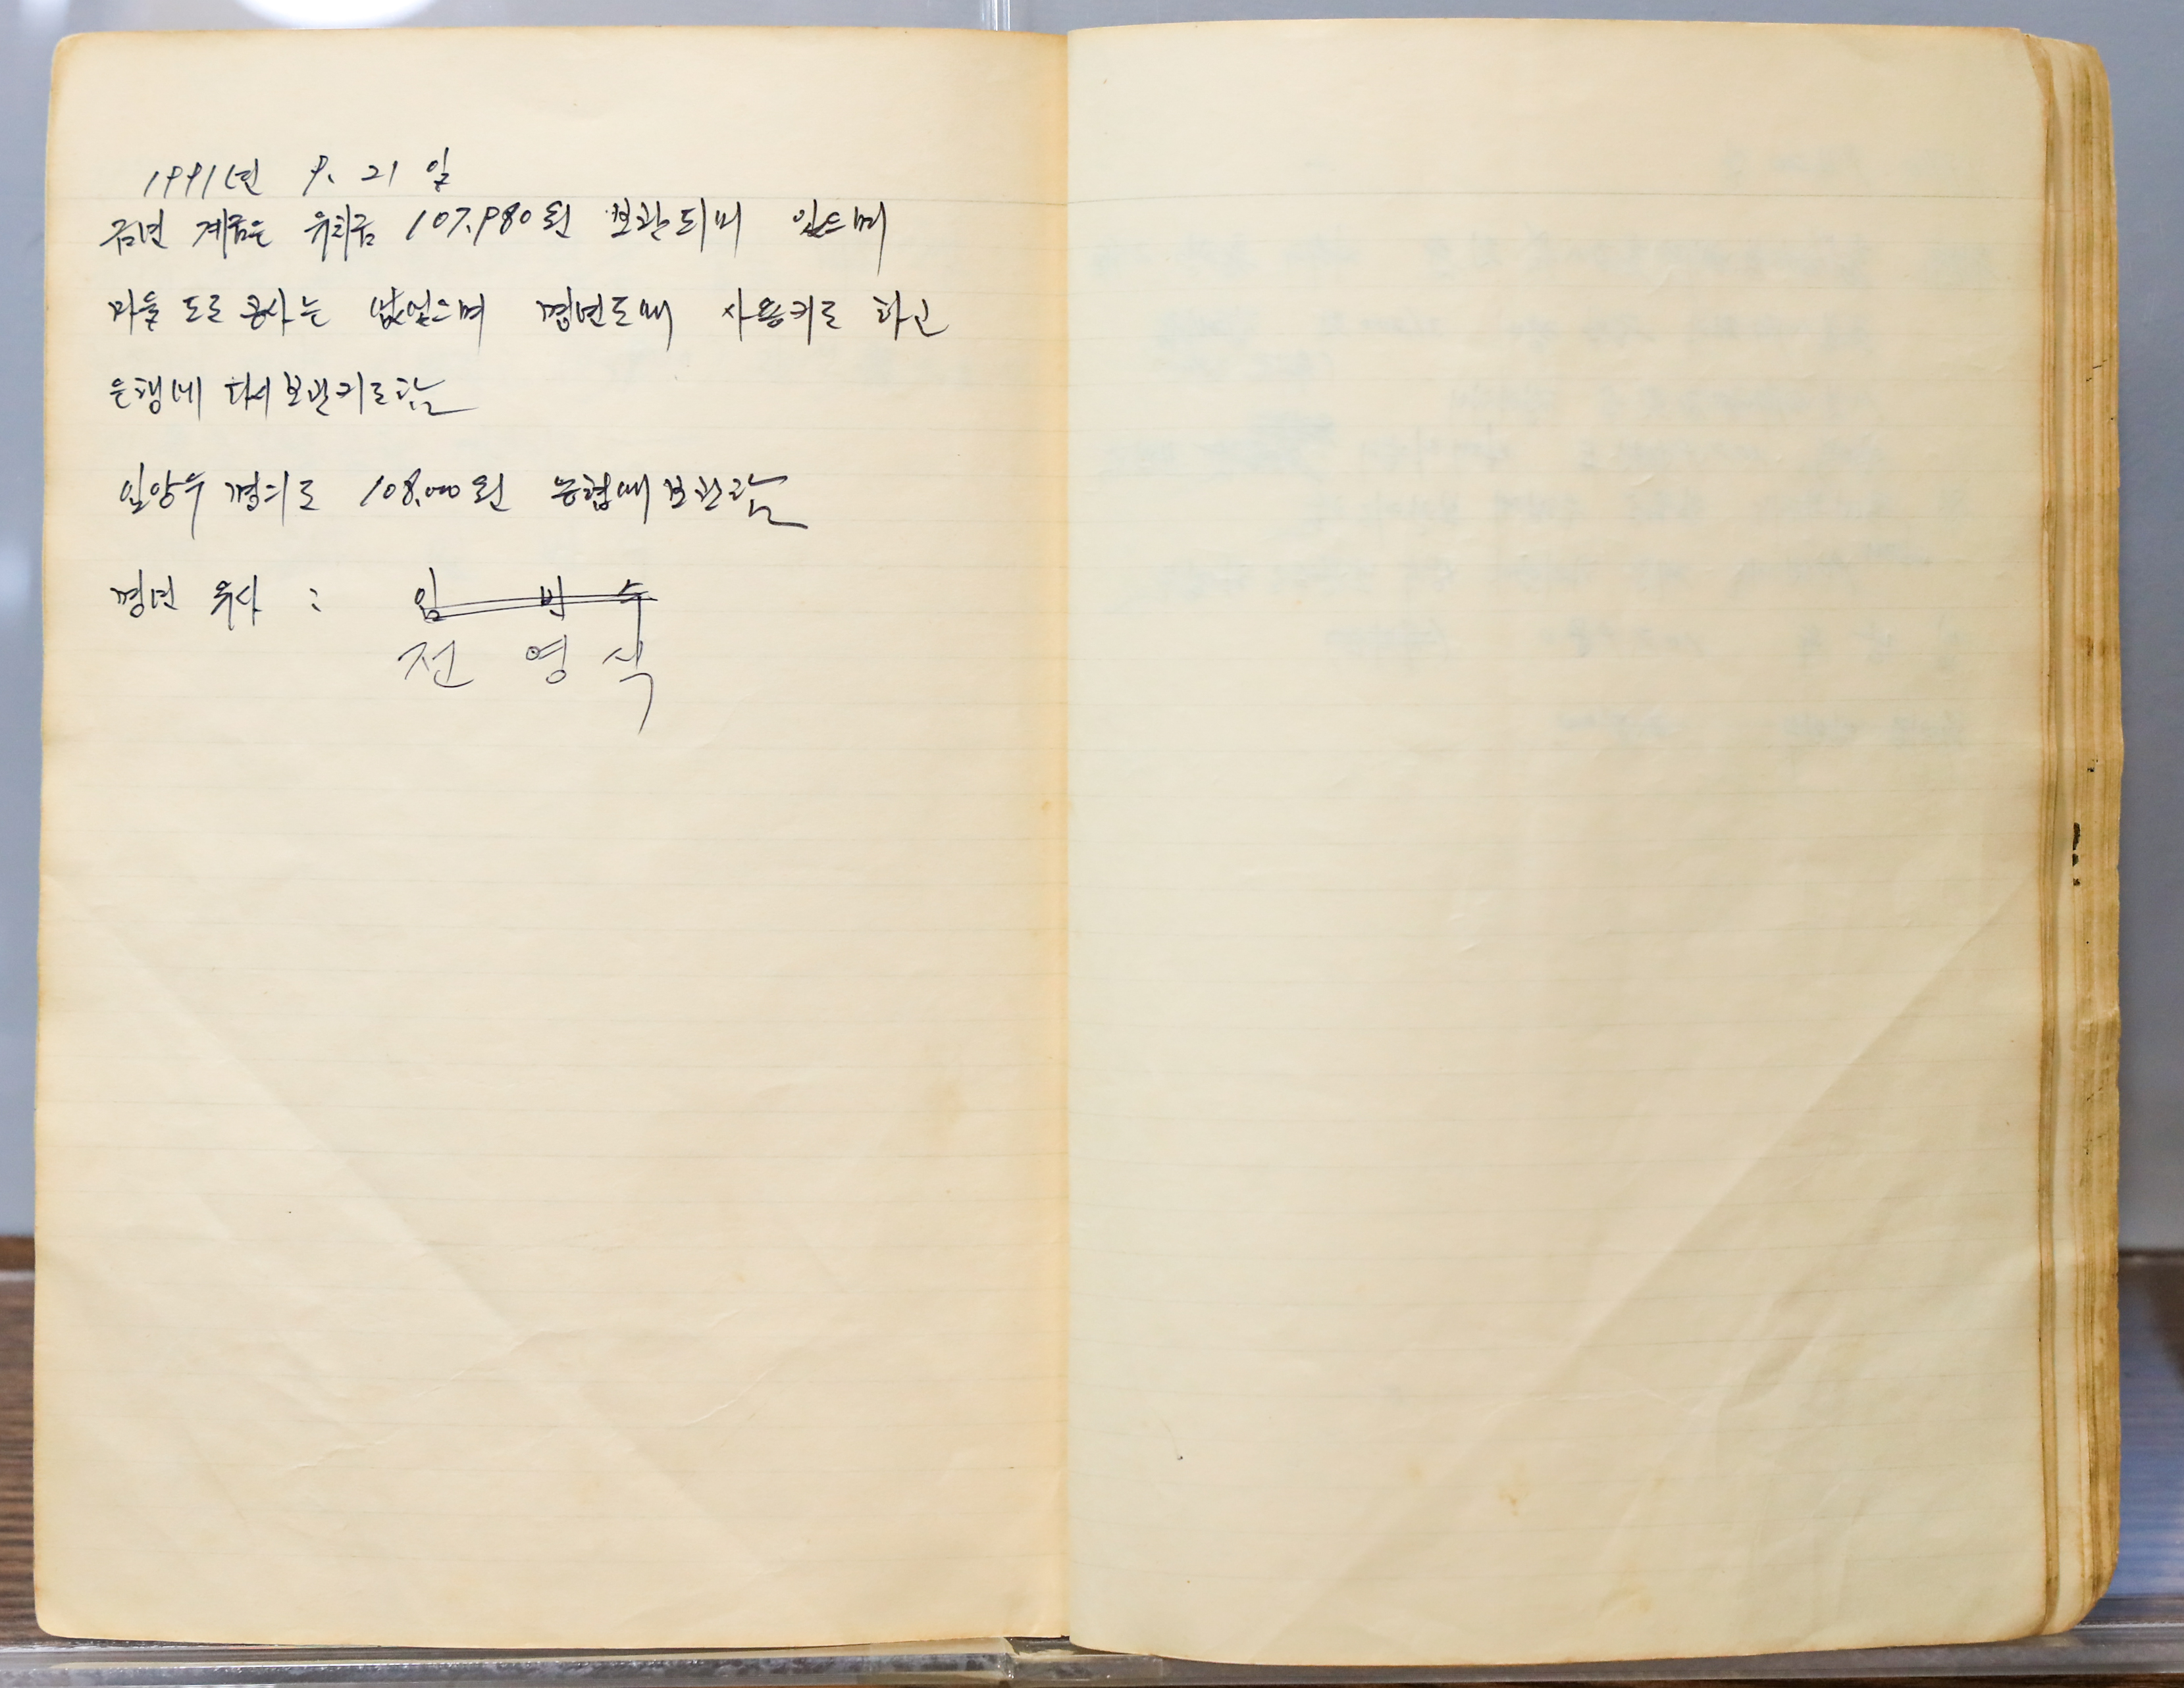 1991년 9. 21일
금년 계금은 유리금 107,980원 보관되며 있으며
마을 도로공사는 없었으며 명년도에 사용키로 하고
은행에 다시 보관키로함
임양우 명의로 108,000원 농협에 보관함
명년 유사 : 임 빈 수
전 영 식